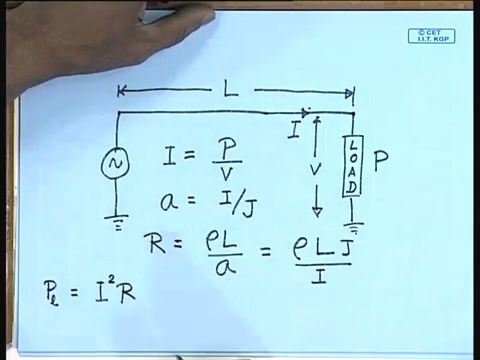 © CET
I.I.T. KGP
L
I
V
LOAD
P
~
I = P/V
a = I/J
R = ρL/a = ρLJ/I
Pₗ = I²R